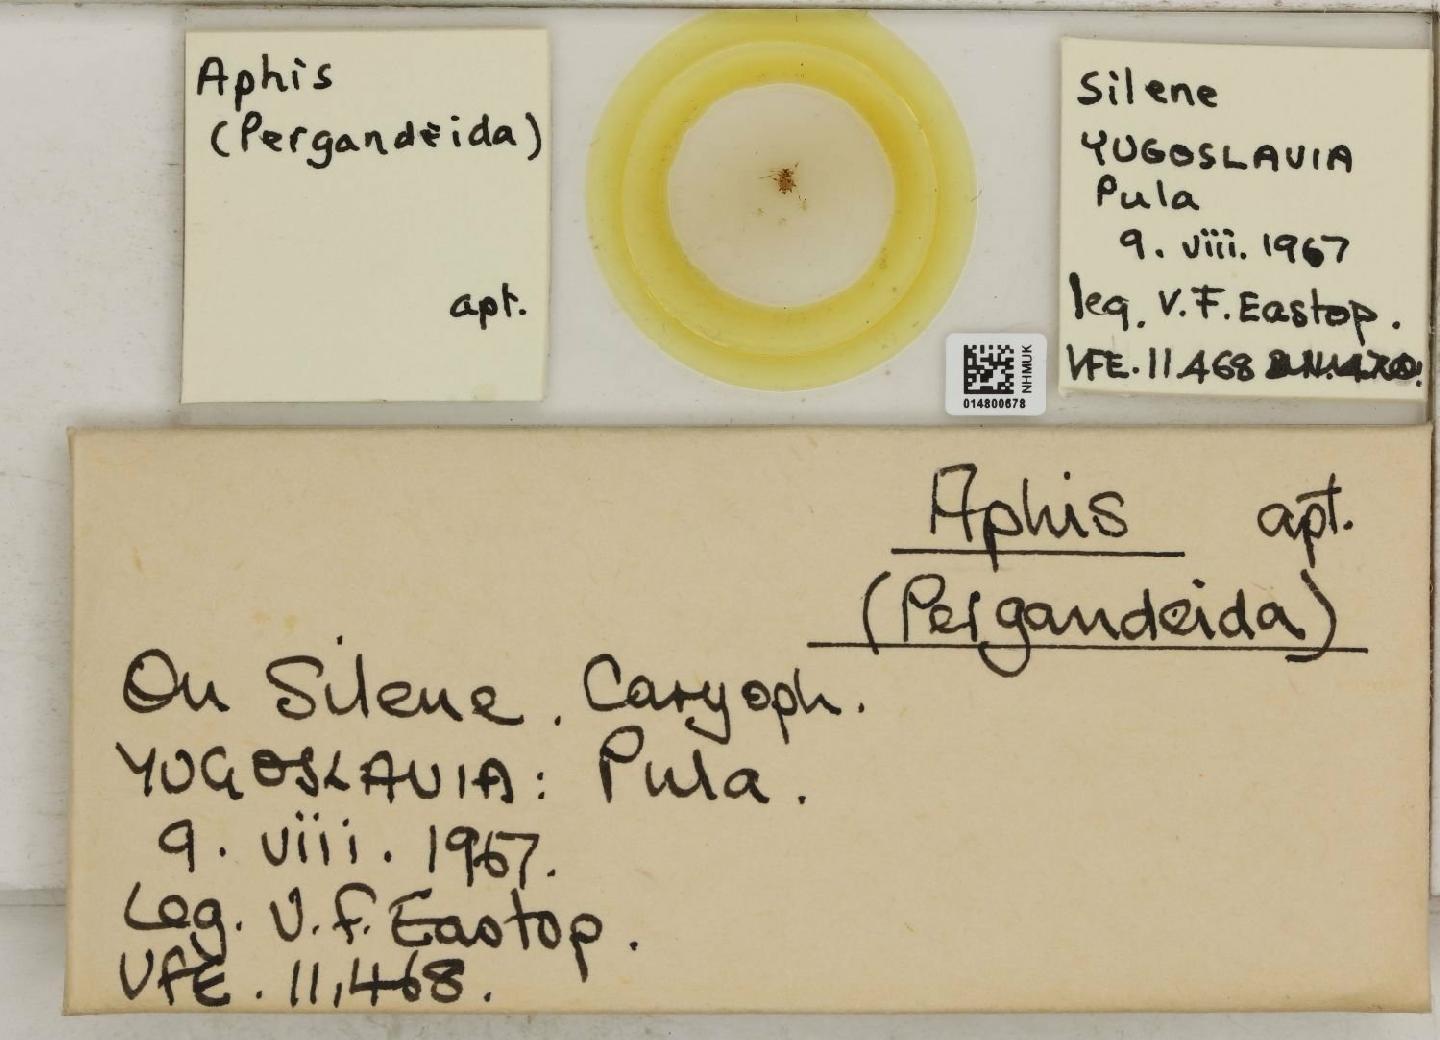 Aphis
(Pergandeida)
apt.
Silene
YUGOSLAVIA
Pula
9. viii. 1967
leg. V.F. Eastop.
VFE. 11468
NHMUK
014800678
Aphis apt.
(Pergandeida)
On Silene. Caryoph.
YUGOSLAVIA: Pula.
9. viii. 1967.
Leg. V.F. Eastop.
VFE. 11,468.